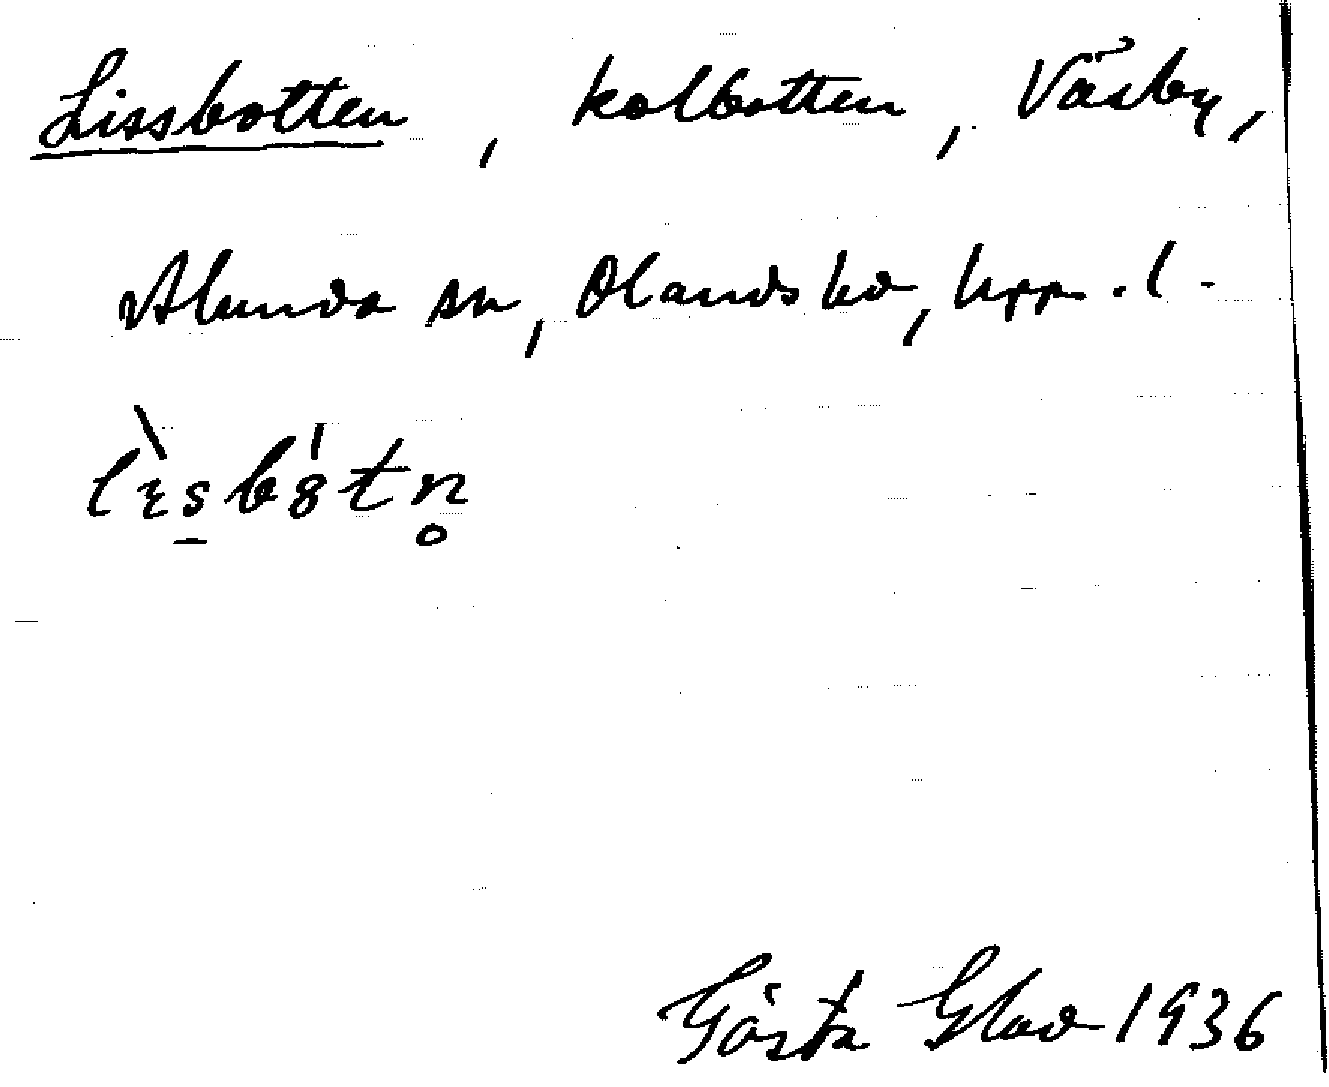 Lissbotten, kolbotten, Väsby,
Alunda sn, Olands hd, Upps. l.
lɪ̀sbȣ́tn̥
Gösta Glad 1936